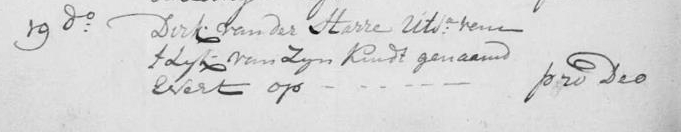 19 do Dirk van der Starre
t Lyk van Zyn Kindt genaamd
Evert op - - - - - - pro Deo